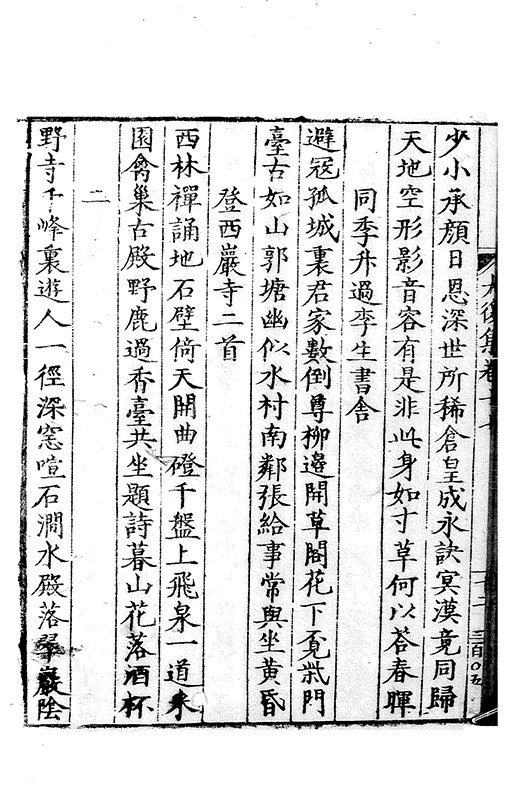 大復集卷十
十二 三百〇五
少小承顏日恩深世所稀倉皇成永訣冥漠竟同歸
天地空形影音容有是非此身如寸草何以荅春暉
同季升過李生書舍
避冦孤城裏君家數倒尊柳邊開草閣花下覔柴門
臺古如山郭塘幽似水村南鄰張給事常與坐黃昏
登西巖寺二首
西林禪誦地石壁倚天開曲磴千盤上飛泉一道來
園禽巢古殿野鹿過香臺共坐題詩暮山花落酒杯
二
野寺千峰裏遊人一徑深窓喧石澗水殿落翠巖陰